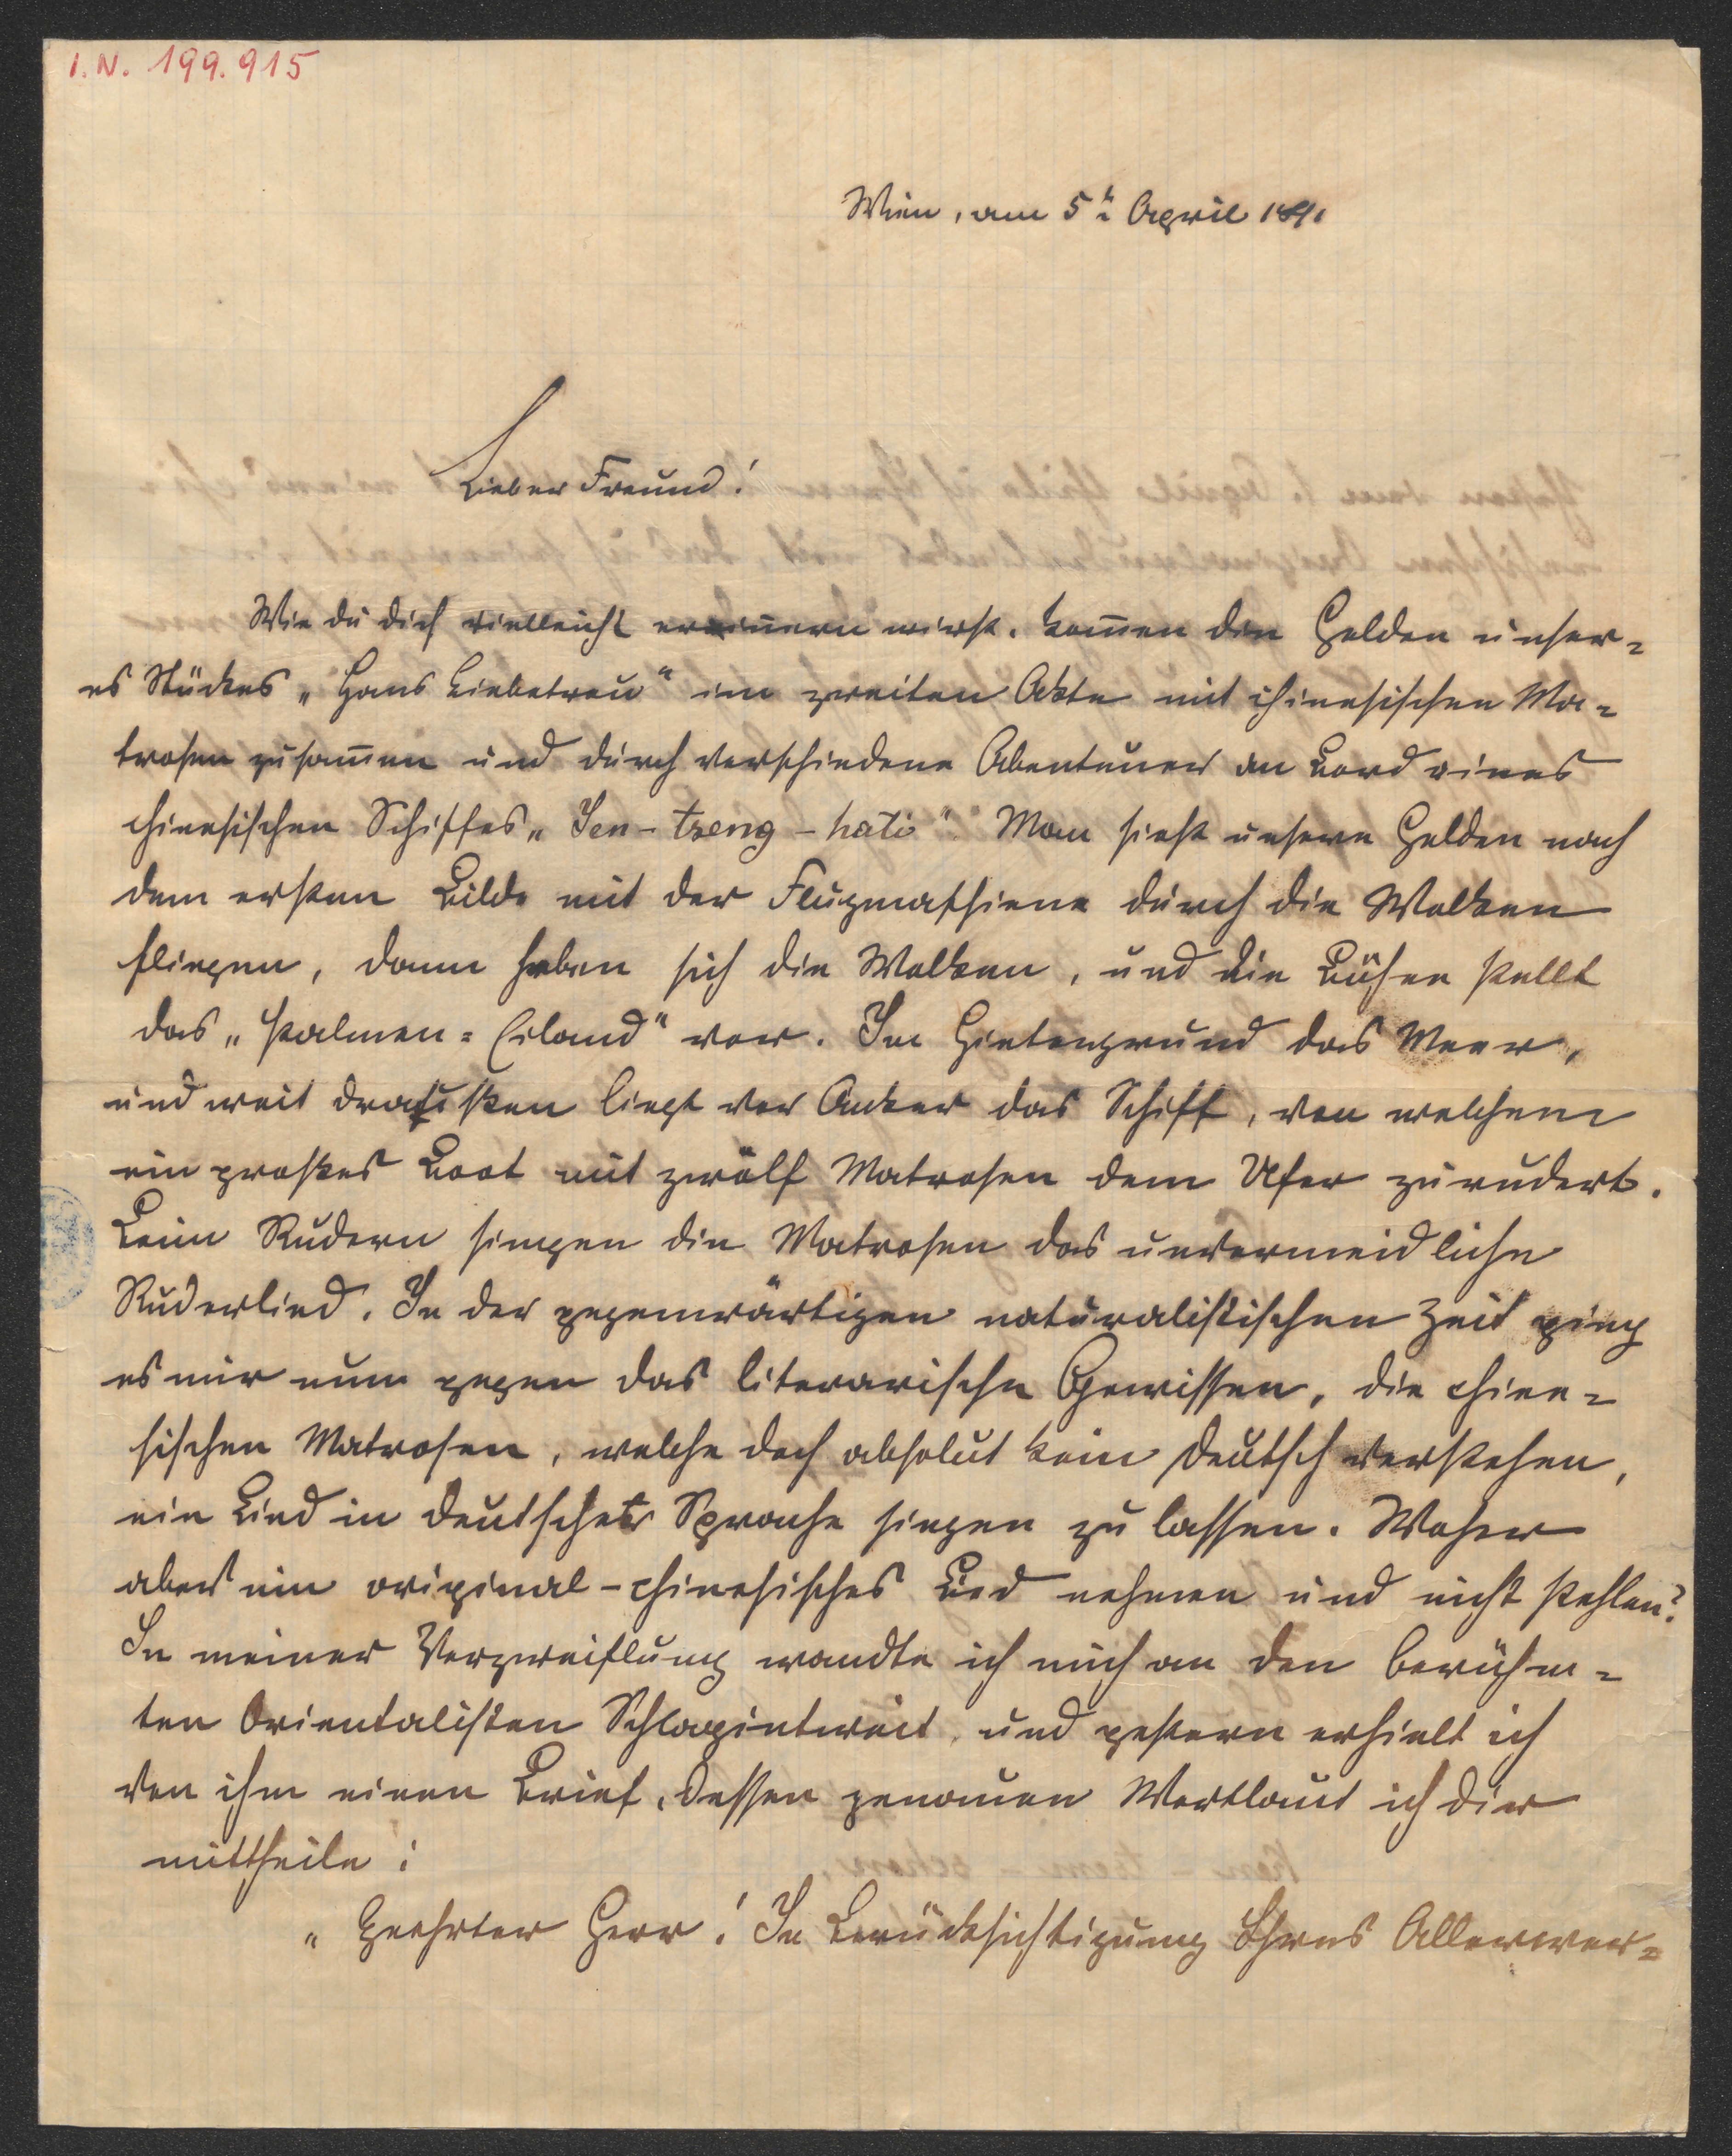 I.N. 199.915
Wien, am 5ten April 1891
Lieber Freund!
Wie du dich vielleicht erinnern wirst, kom̄en die Helden unser=
es Stückes „Hans Liebetreu“ im zweiten Akte mit chinesischen Ma=
trosen zusam̄en und durch verschiedene Abenteuer an Bord eines
chinesischen Schiffes „Yen-tseng-hati“. Man sieht unsere Helden nach
dem ersten Bilde mit der Flugmaschiene durch die Wolken
fliegen, dann heben sich die Wolken, und die Bühne stellt
das „Palmen=Eiland“ vor. Im Hintergrund das Meer,
und weit draußen liegt vor Anker das Schiff, von welchem
ein großes Boot mit zwölf Matrosen dem Ufer zurudert.
Beim Rudern singen die Matrosen das unvermeidliche
Ruderlied. In der gegenwärtigen naturalistischen Zeit ging
es mir nun gegen das literarische Gewissen, die chine=
sischen Matrosen, welche doch absolut kein Deutsch verstehen,
ein Lied in deutscher Sprache singen zu lassen. Woher
aber ein original-chinesisches Lied nehmen und nicht stehlen?
In meiner Verzweiflung wandte ich mich an den berühm=
ten Orientalisten Schlagintweit, und gestern erhielt ich
von ihm einen Brief, dessen genauen Wortlaut ich dir
mittheile:
„Geehrter Herr! In Berücksichtigung Ihres Allerwer=